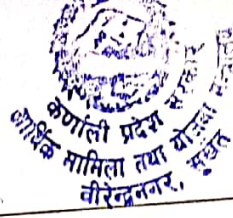 कर्णाली प्रदेश सरकार
आर्थिक मामिला तथा योजना
वीरेन्द्रनगर, सुर्खेत